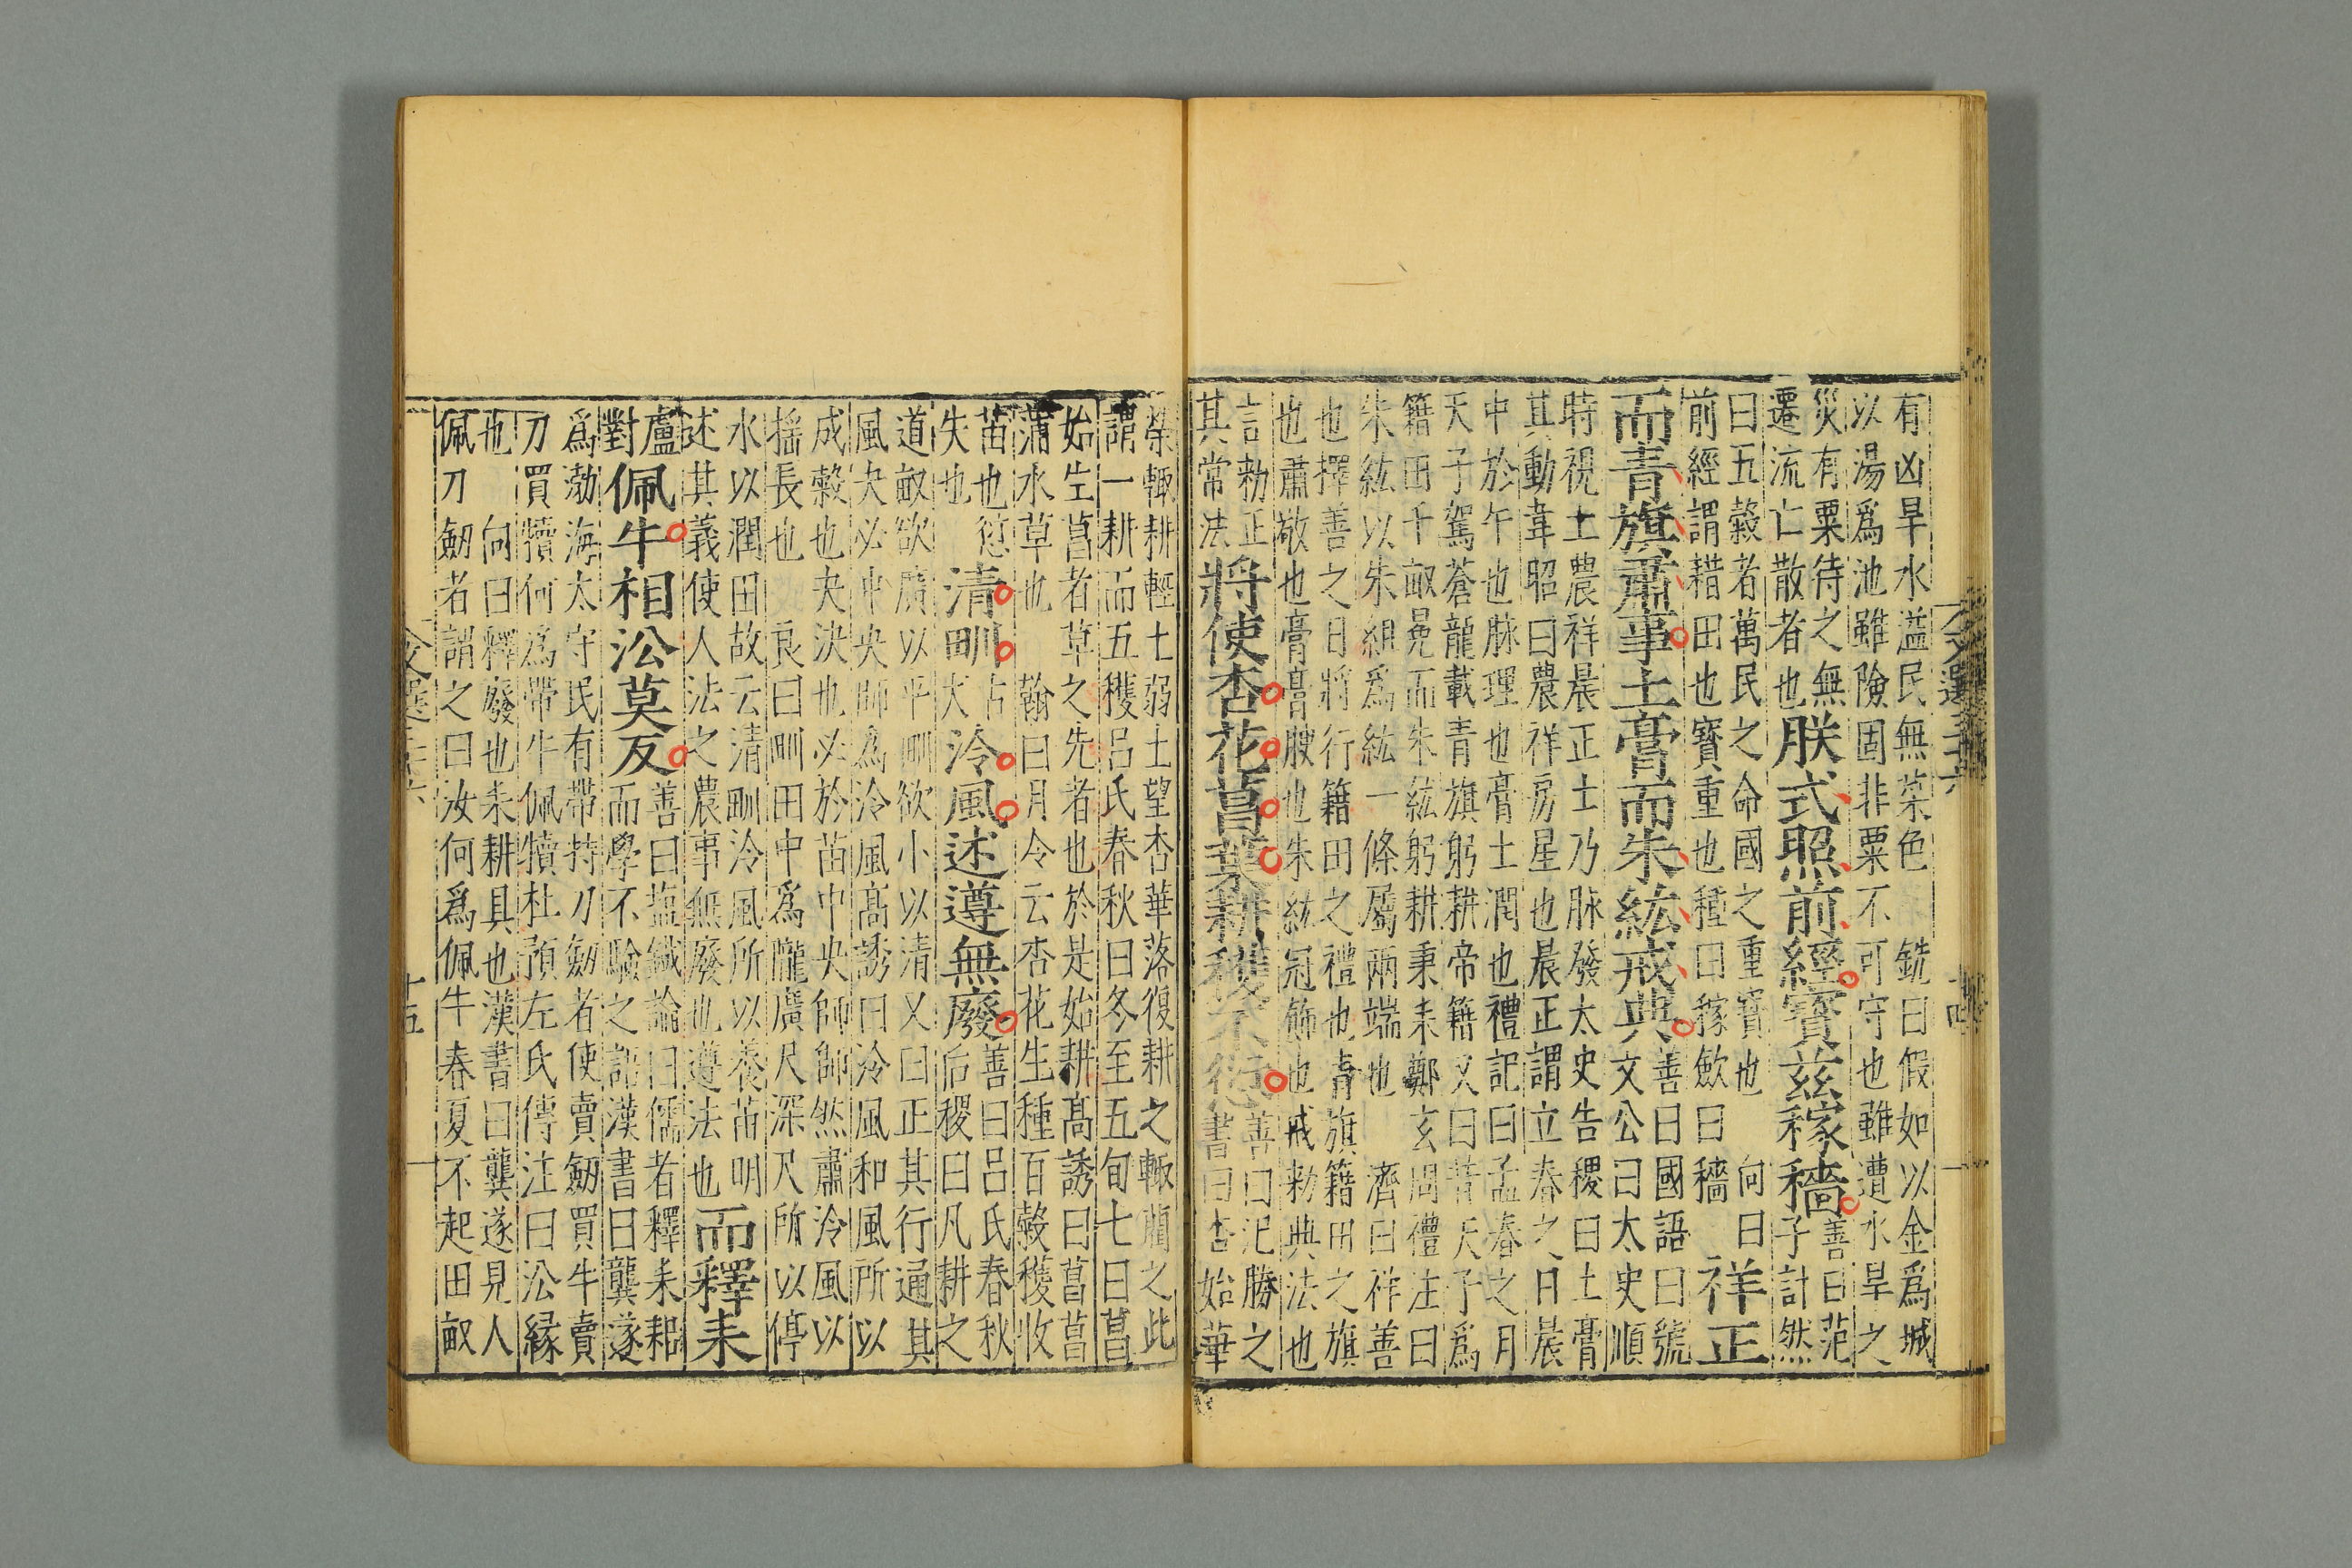 文選三十六
十四
有凶旱水溢民無菜色 銑曰假如以金爲城
以湯爲池雖險固非粟不可守也雖遭水旱之
災有粟待之無
遷流亡散者也
朕式照前經寳兹稼穡
善曰范
子計然
曰五穀者萬民之命國之重寳也 向曰
前經謂耤田也寳重也種曰稼歛曰穡
祥正
而青旗肅事土膏而朱紘戒典
善曰國語曰號
文公曰太史順
時視土農祥晨正土乃脉發太史告稷曰土膏
其動韋昭曰農祥房星也晨正謂立春之日晨
中於午也脉理也膏土潤也禮記曰孟春之月
天子駕蒼龍載青旗躬耕帝籍又曰昔天子爲
籍田千畝冕而朱紘躬耕秉耒鄭玄周禮注曰
朱紘以朱組爲紘一條屬兩端也 濟曰祥善
也擇善之日將行籍田之禮也青旗籍田之旗
也肅敬也膏膏腴也朱紘冠飾也戒勑典法也
言勑正
其常法
將使杏花菖葉耕穫不愆
善曰氾勝之
書曰杏始華
榮輙耕輕土弱土望杏華落復耕之輙藺之此
謂一耕而五穫吕氏春秋曰冬至五旬七日菖
始生菖者草之先者也於是始耕髙誘曰菖菖
蒲水草也 翰曰月令云杏花生種百榖穫收
苗也愆
失也
清甽
古
犬
泠風述遵無廢
善曰吕氏春秋
后稷曰凡耕之
道畝欲廣以平甽欲小以清又曰正其行通其
風夬必中央師為泠風髙誘曰泠風和風所以
成榖也夬決也必於苗中央師師然肅泠風以
揺長也 良曰甽田中爲隴廣尺深尺所以停
水以潤田故云清甽泠風所以養苗明
述其義使人法之農事無廢也遵法也
而釋耒
盧
對
佩牛相㳂莫反
善曰塩鐵論曰儒者釋耒耜
而學不驗之語漢書曰龔遂
爲渤海太守民有帶持刀劒者使賣劒買牛賣
刀買犢何為帶牛佩犢杜預左氏傳注曰㳂縁
也 向曰釋廢也耒耕具也漢書曰龔遂見人
佩刀劒者謂之曰汝何爲佩牛春夏不起田畝
十五